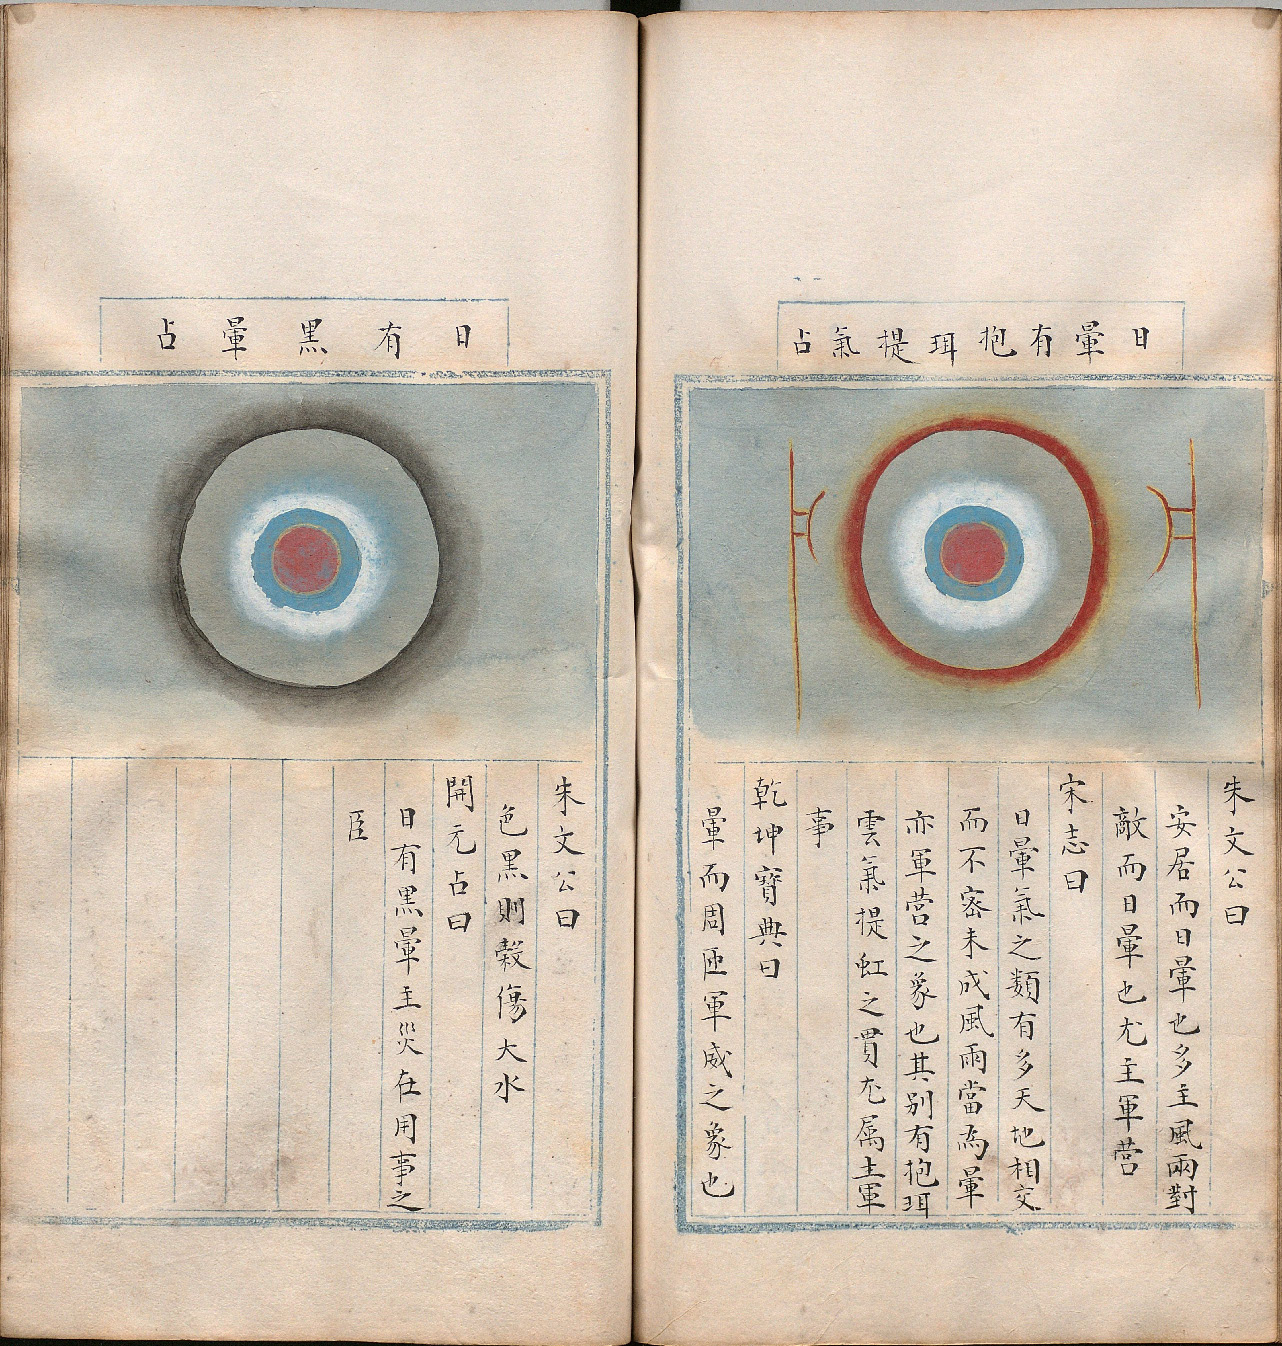 日暈有抱珥提氣占
朱文公曰
安居而日暈也多主風兩對
敵而日暈也尤主軍营
宋志曰
日暈氣之類有多天地相交
而不密未成風雨當為暈
亦軍营之象也其别有抱珥
雲氣提虹之貫尤属主軍
事
乾坤寶典曰
暈而周匝軍威之象也
日有黑暈占
朱文公曰
色黑則榖傷大水
開元占曰
日有黑暈主災在用事之
臣